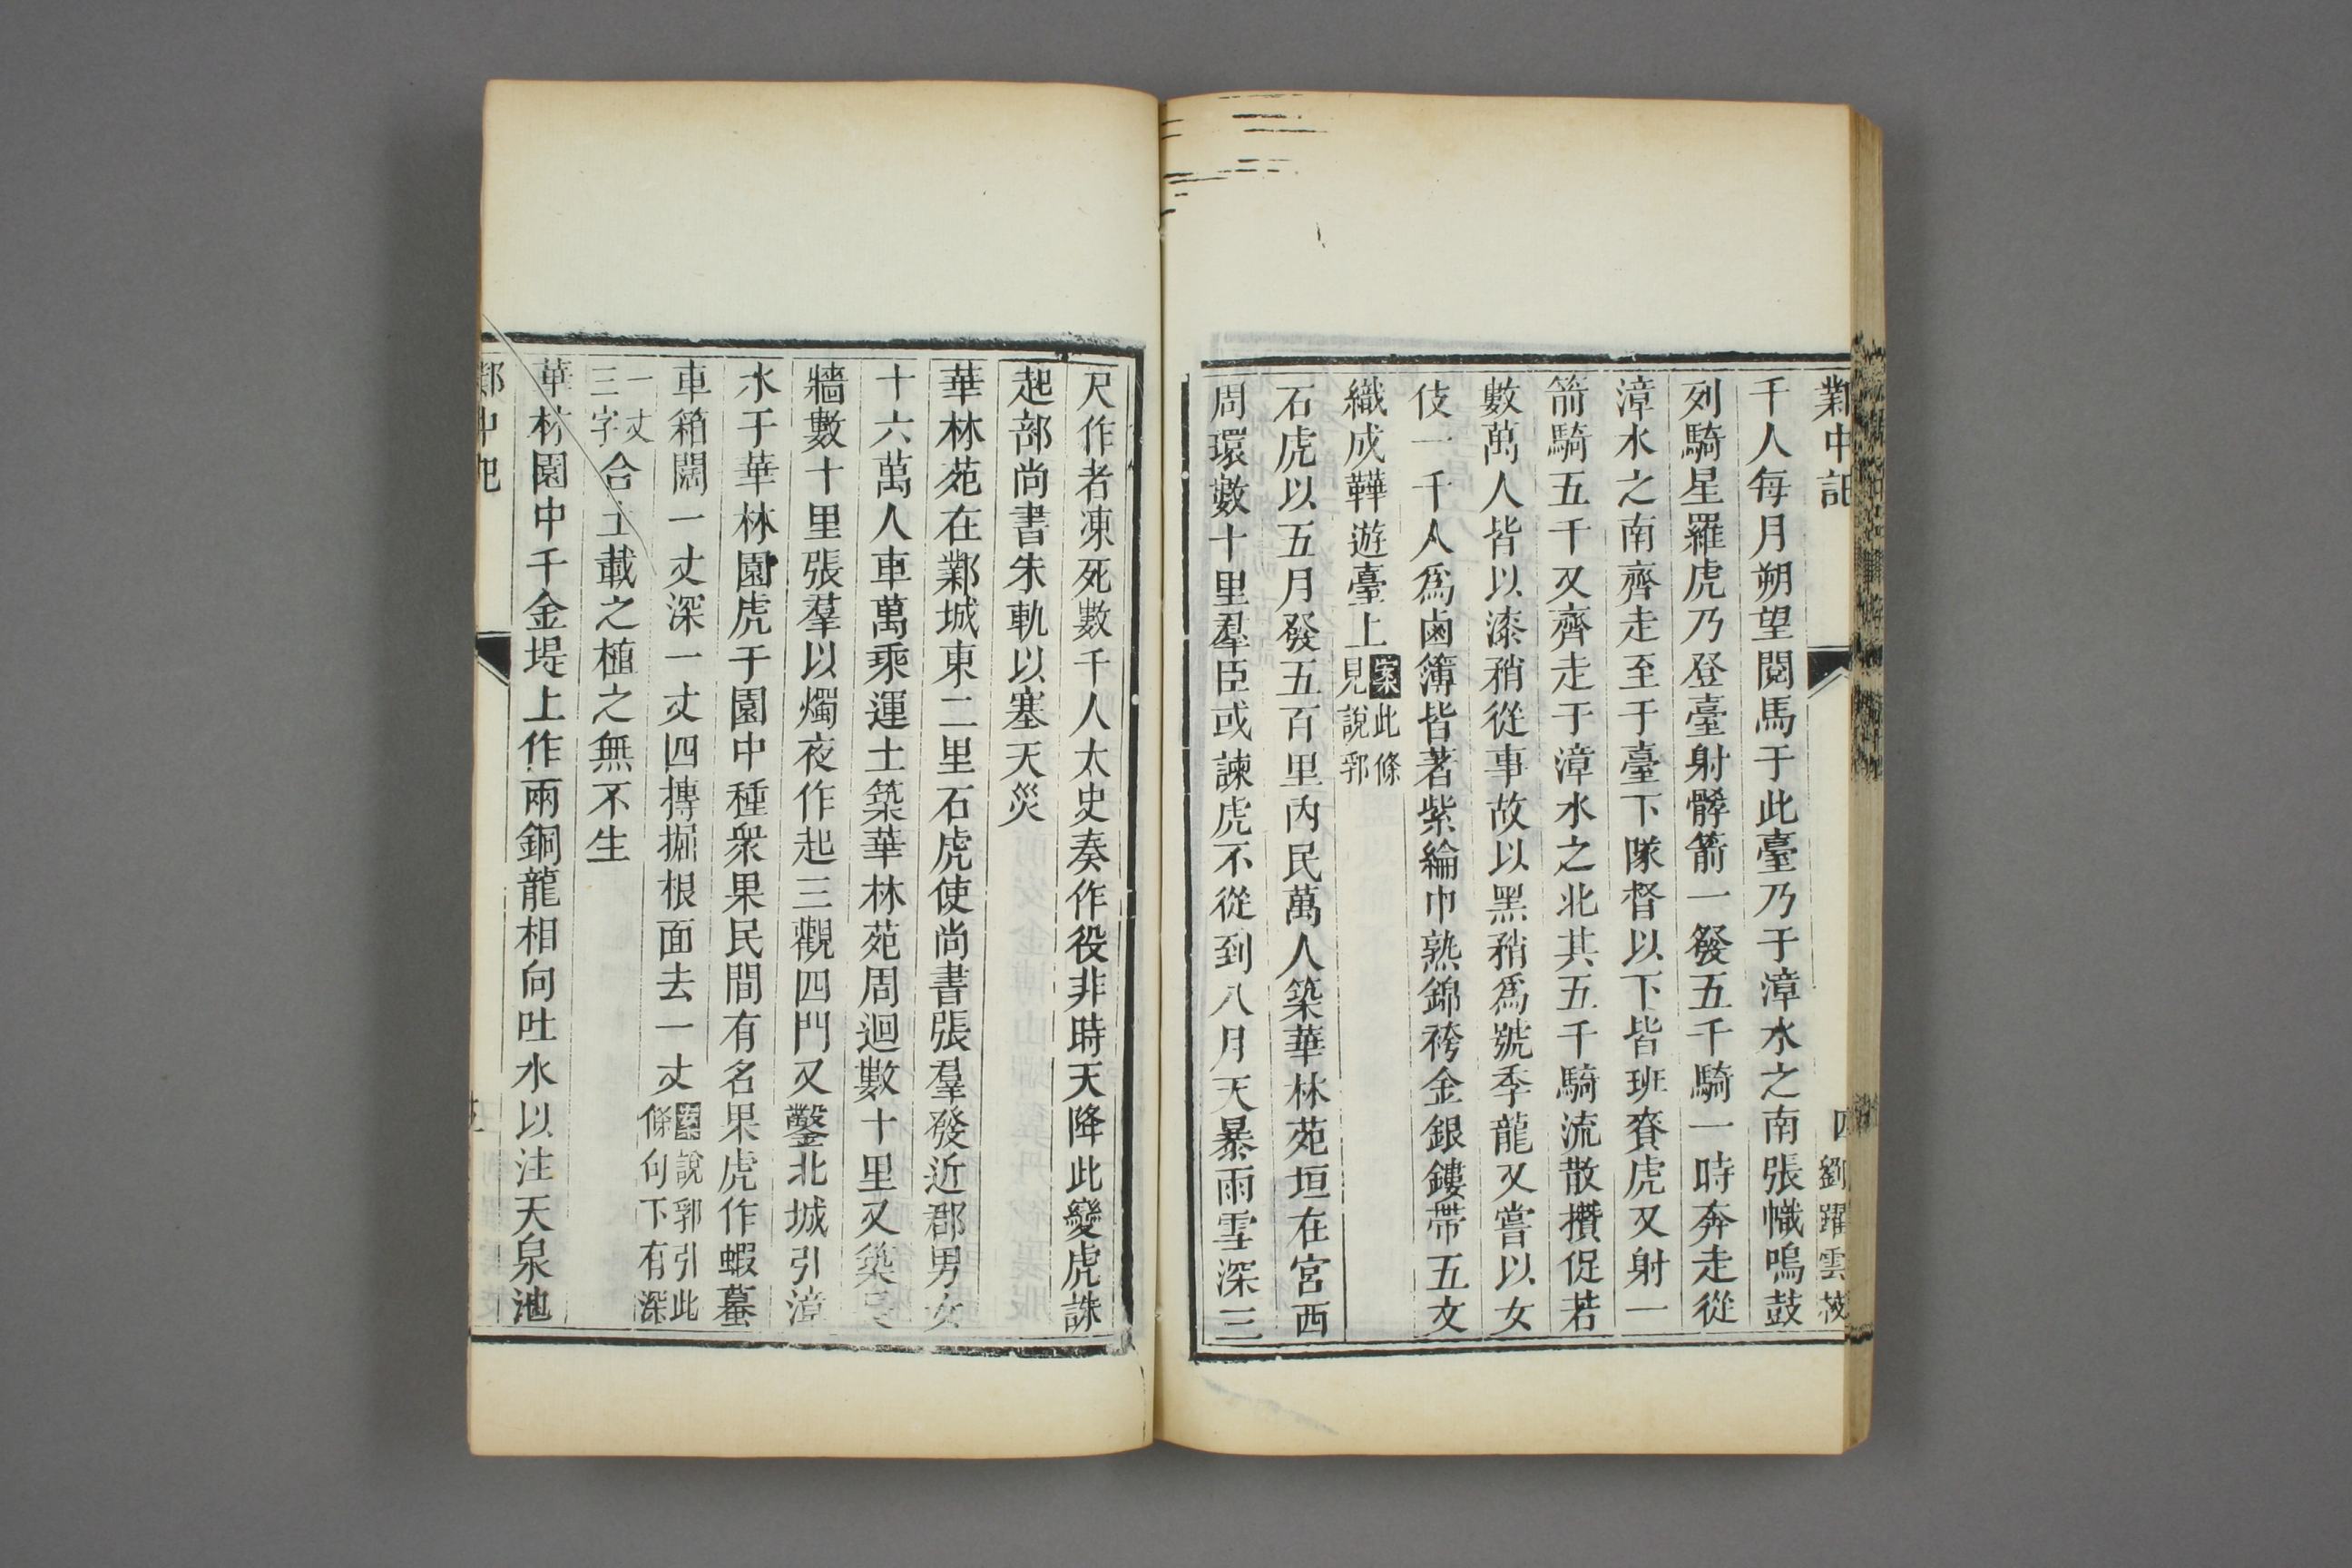 鄴中記 四 劉躍雲校
千人每月朔望閱馬于此臺乃于漳水之南張幟鳴鼓
列騎星羅虎乃登臺射髇箭一發五千騎一時奔走從
漳水之南齊走至于臺下隊督以下皆班賚虎又射一
箭騎五千又齊走于漳水之北其五千騎流散攢促若
數萬人皆以漆矟從事故以黑矟爲號季龍又嘗以女
伎一千人爲鹵簿皆著紫綸巾熟錦袴金銀鏤帶五文
織成鞾遊臺上案此條見說郛
石虎以五月發五百里內民萬人築華林苑垣在宮西
周環數十里羣臣或諫虎不從到八月天暴雨雪深三
尺作者凍死數千人太史奏作役非時天降此變虎誅
起部尚書朱軌以塞天災
華林苑在鄴城東二里石虎使尚書張羣發近郡男女
十六萬人車萬乘運土築華林苑周迴數十里又築長
牆數十里張羣以燭夜作起三觀四門又鑿北城引漳
水于華林園虎于園中種衆果民間有名果虎作蝦蟇
車箱闊一丈深一丈四摶掘根面去一丈案說郛引此條句下有深
一丈三字合土載之植之無不生
華林園中千金堤上作兩銅龍相向吐水以注天泉池
鄴中記